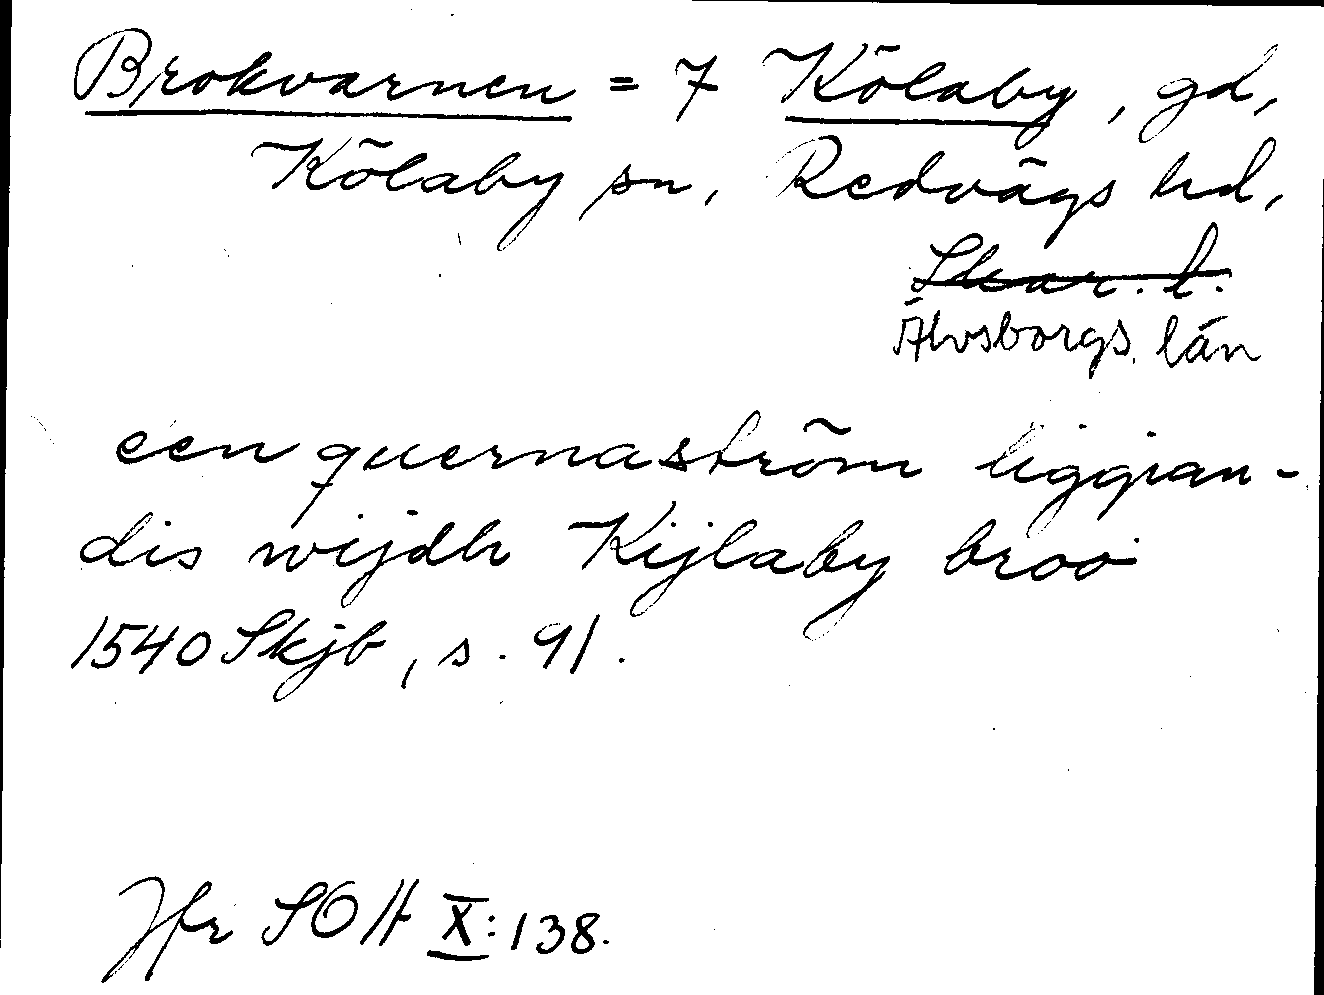 Brokvarnen = 7 Kölaby, gd,
Kölaby sn, Redvägs hd,
Skar. l.
Älvsborgs län
een quernaström liggian-
dis wijdh Kijlaby broo
1540 Skjb, s. 91.
Jfr SOÄ X:138.